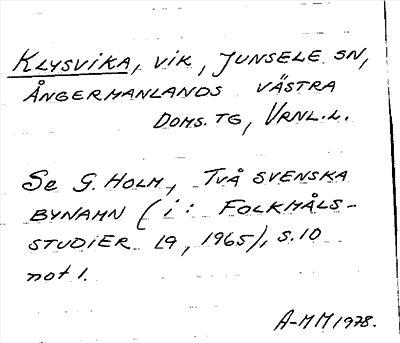 KLYSVIKA, VIK, JUNSELE SN,
ÅNGERMANLANDS VÄSTRA
DOMS. TG, VRNL.L.
Se G. HOLM, TVÅ SVENSKA
BYNAMN (i: FOLKMÅLS-
STUDIER 19, 1965), S.10
not 1.
A-MM 1978.